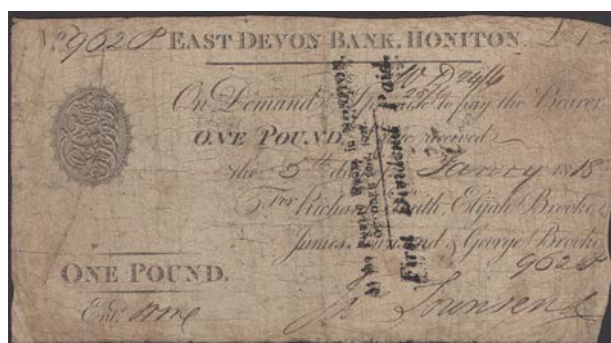 No. 9028 EAST DEVON BANK, HONITON. £1
On Demand I Promise to pay the Bearer
ONE POUND, received
the 5th day of Janry 1818
For Richard Smith, Elijah Brooke,
James Townsend & George Brooke
9028
ONE POUND.
Jas Townsend
First Dividend Paid